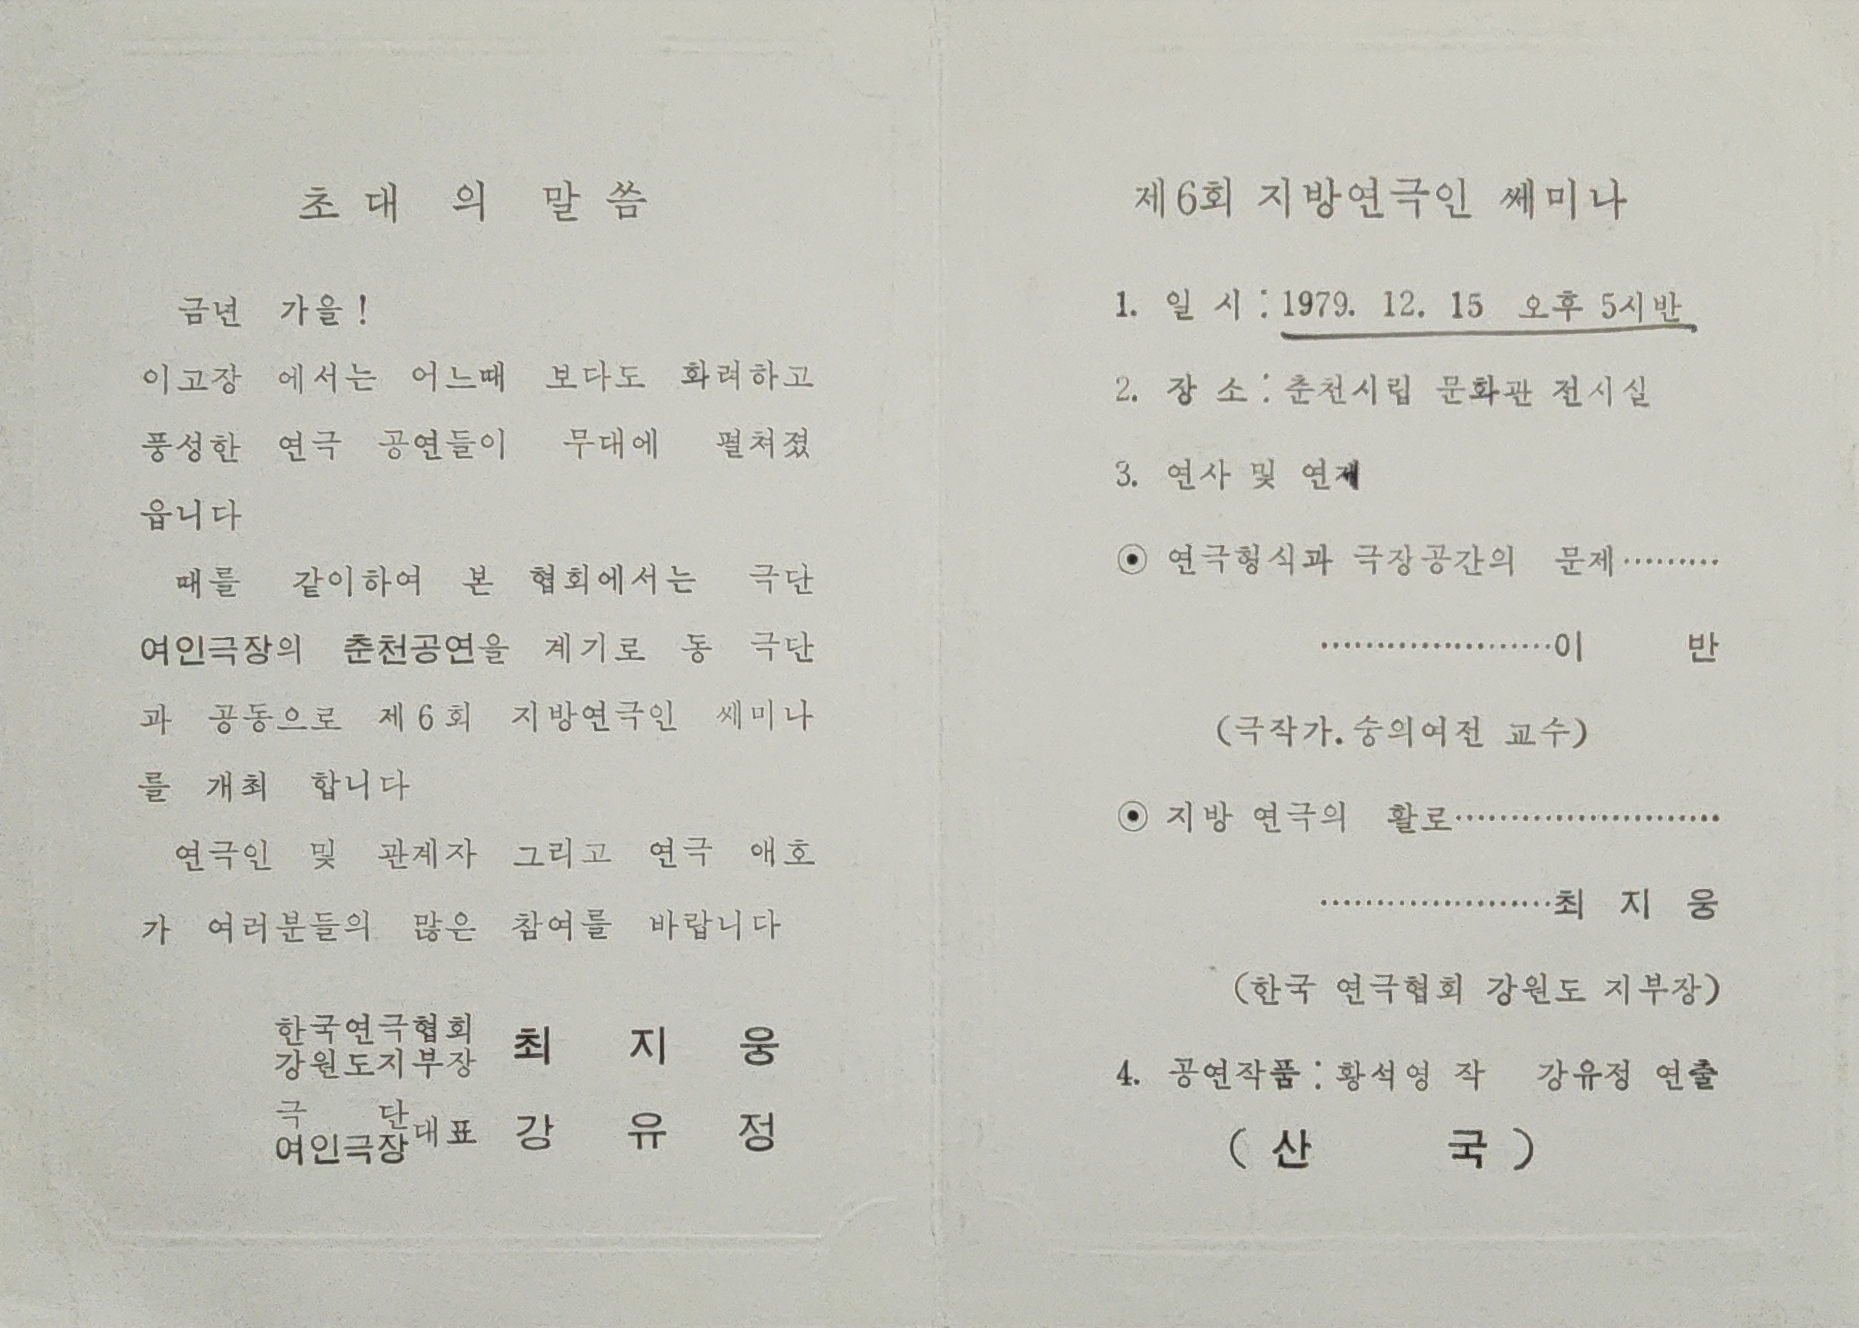 초대 의 말씀
금년 가을!
이고장 에서는 어느때 보다도 화려하고
풍성한 연극 공연들이 무대에 펼쳐졌
읍니다
때를 같이하여 본 협회에서는 극단
여인극장의 춘천공연을 계기로 동 극단
과 공동으로 제6회 지방연극인 쎄미나
를 개최 합니다
연극인 및 관계자 그리고 연극 애호
가 여러분들의 많은 참여를 바랍니다
한국연극협회
강원도지부장 최 지 웅
극 단
여인극장 대표 강 유 정
제6회 지방연극인 쎄미나
1. 일 시 : 1979. 12. 15 오후 5시반
2. 장 소 : 춘천시립 문화관 전시실
3. 연사 및 연제
⊙ 연극형식과 극장공간의 문제………
…………………이 반
(극작가.숭의여전 교수)
⊙ 지방 연극의 활로……………………
…………………최 지 웅
(한국 연극협회 강원도 지부장)
4. 공연작품 : 황석영 작 강유정 연출
( 산 국 )